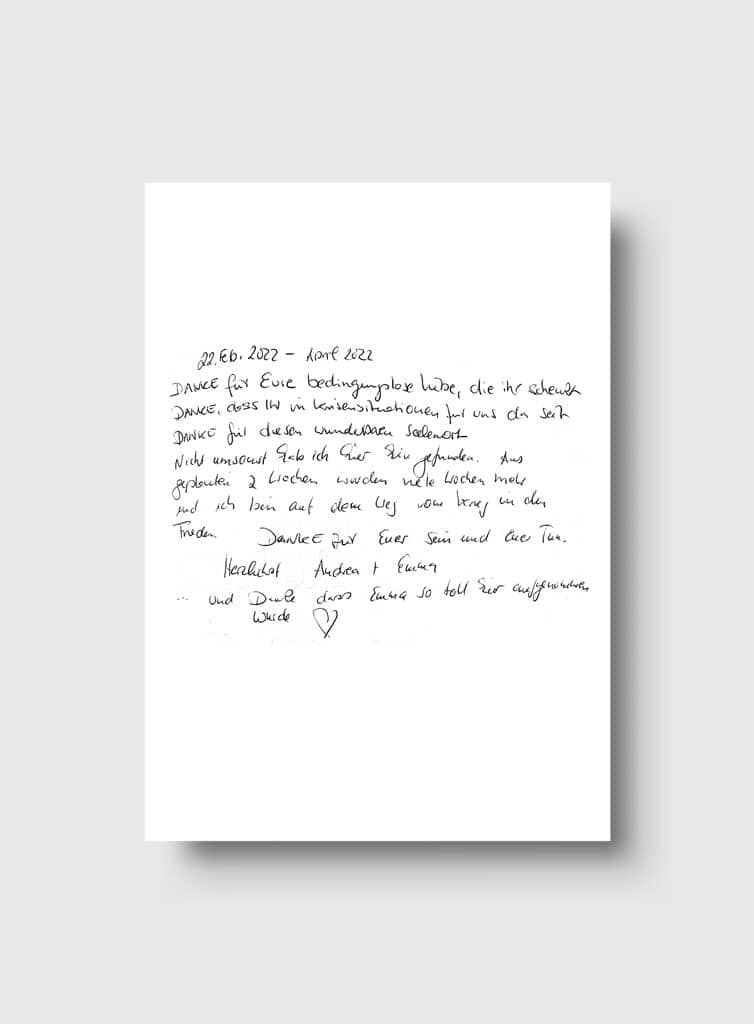 22. Feb. 2022 – April 2022
DANKE für Eure bedingungslose Liebe, die ihr schenkt
DANKE, dass Ihr in Krisensituationen für uns da seit
DANKE für diesen wunderbaren Seelenort
Nicht umsonst hab ich hier hin gefunden. Aus
geplanten 2 Wochen wurden viele Wochen mehr
und ich bin auf dem Weg vom Krieg in den
Frieden. DANKE für Euer Sein und Euer Tun.
Herzlichst Andrea + Emma
... und Danke dass Emma so toll hier aufgenommen
wurde ♡